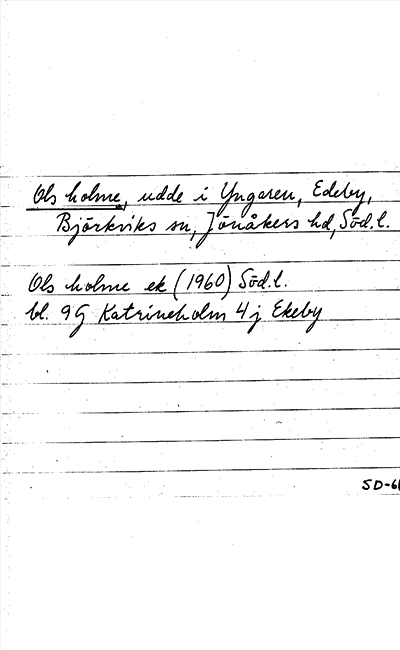 Ols holme, udde i Yngaren, Edeby,
Björkviks sn, Jönåkers hd, Söd.l.
Ols holme ek (1960) Söd.l.
bl. 9G Katrineholm 4j Ekeby
SD-6